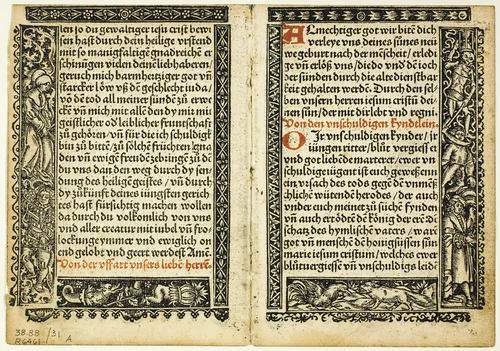 len so du gewaltiger iesu crist bewi
sen hast durch dein heilige vrstend
mit so manigfaltige gnadreiche er
schinūgen vielen deinē liebhaberen,
geruch mich barmhertziger got vñ
starcker löw vß dē geschlecht iuda,
võ dē tod all meiner sündē zu erwe
ckē vñ mich mit allē den dy mir mit
geistlicher od leiblicher frūntschaft
zu gehörē/ vñ für die ich schuldigk
bin zu bittē/ zu sölchē früchtē gna
den vñ ewigē freudē zebringē zu dē
du vns dan den weg durch dy sen
dung des heilige geistes/ vñ durch
dy zukunft deines iungsten gerich
tes hast fürsichtig machen wollen
da durch du volkomlich von vns
vnd aller creatur mit iubel vñ fro
lockung ymmer vnd ewiglich on
end gelobt vnd geert werdest Amē.
Von der vffart vnsers liebē herrē.
38.88 /31
R6461 A
Almechtiger got wir bitē dich
verleye vns deines sūnes neü
we geburt nach der mēscheit/ erledi
ge vñ erlöß vns/ die do vnd dē ioch
der sünden durch die alte dienstbar
keit gehalten werdē. Durch den sel
ben vnsern herren iesum cristū dei
nen sün/ der mit dir lebt vnd regnir
Von den vnschuldigen kyndelein.
O Ir vnschuldigen kynder/ ir
iüngen ritter/ blūt vergiess er
vnd got liebē de marterer/ ewer vn
schuldige iugent ist euch gewesenn
ein vrsach des tods gegē dē vnmēß
chlichē wütendē herodes/ der auch
vnder euch meinet zu süchē fynden
vñ auch ertödtē dē kōnig der erē/ dē
schatz des hymlischē vaters/ ware
got vñ menschē dē honigsüssen sün
marie iesum cristum/ welches ewer
blütuergiessē vñ vnschuldigs leidē